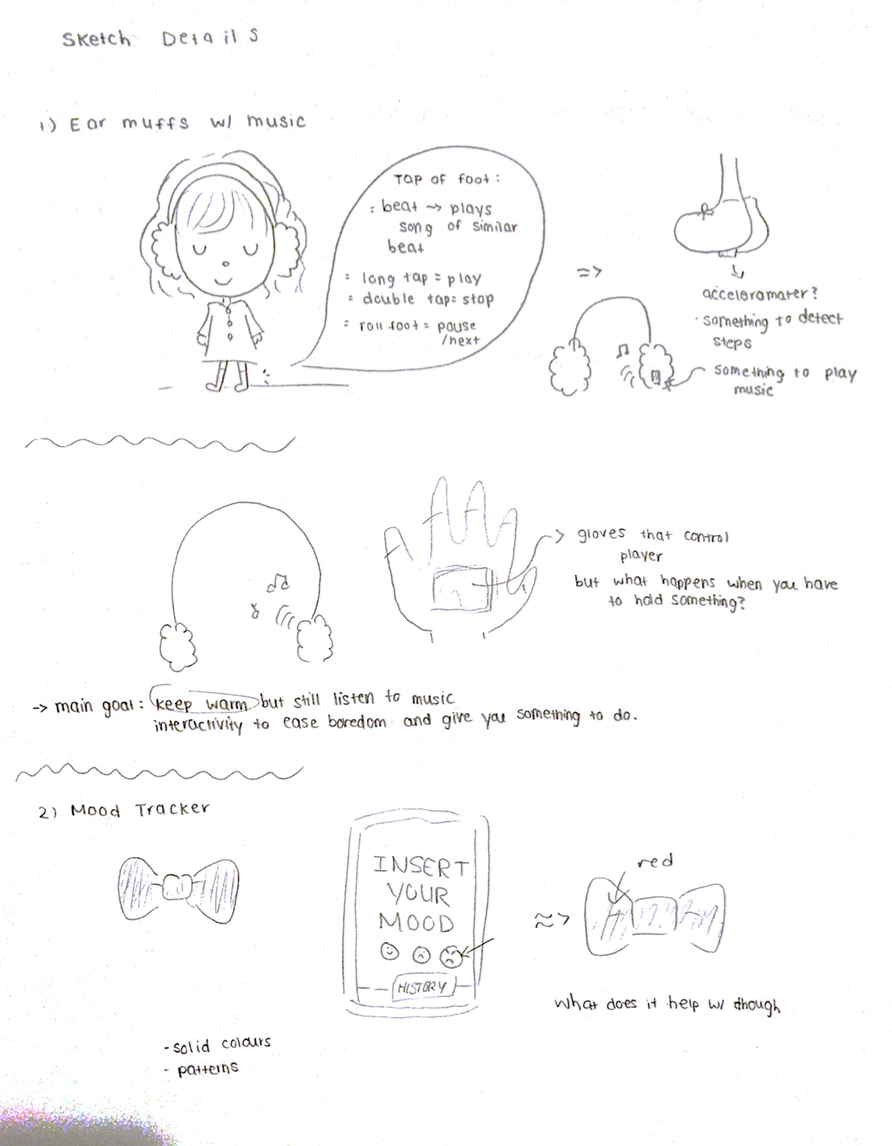 Sketch Details
1) Ear muffs w/ music
Tap of foot:
= beat → plays
song of similar
beat
= long tap = play
= double tap = stop
= roll foot = pause
/next
=>
acceleramater?
· something to detect
steps
something to play
music
gloves that control
player
but what happens when you have
to hold something?
→ main goal: keep warm but still listen to music
interactivity to ease boredom and give you something to do.
2) Mood Tracker
INSERT
YOUR
MOOD
HISTORY
≈>
red
What does it help w/ though
- solid colours
- patterns